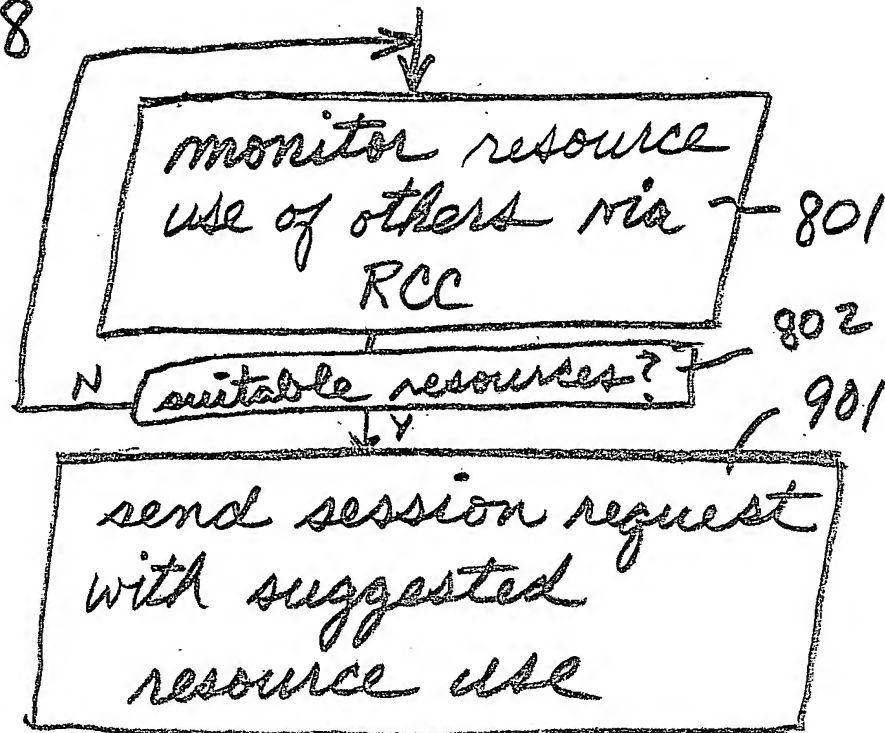 8
monitor resource
use of others via
RCC
801
802
N suitable resources?
Y
901
send session request
with suggested
resource use